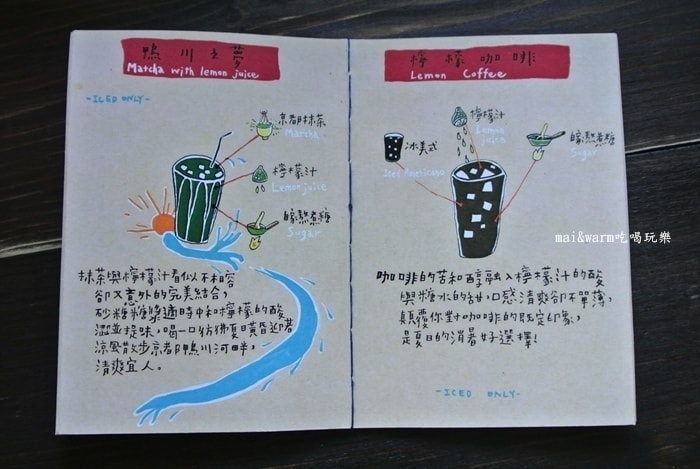 鴨川之夢
Matcha with lemon juice
-ICED ONLY-
京都抹茶
Matcha
檸檬汁
Lemon juice
嫁熬煮糖
Sugar
抹茶與檸檬汁看似不相容
卻又意外的完美結合,
砂糖糖漿適時中和檸檬的酸
澀並提味,喝一口彷彿夏日黃昏迎著
涼風散步京都鴨川河畔,
清爽宜人。
檸檬咖啡
Lemon Coffee
檸檬汁
Lemon
juice
冰美式
Iced Americano
嫁熬煮糖
Sugar
咖啡的苦和醇融入檸檬汁的酸
與糖水的甜,口感清爽卻不單薄,
顛覆你對咖啡的既定印象,
是夏日的消暑好選擇!
-ICED ONLY-
mai&warm吃喝玩樂